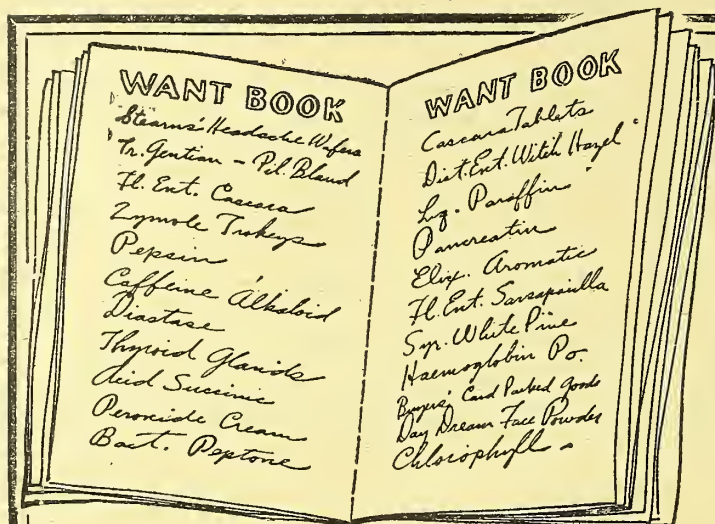 WANT BOOK
Stearns' Headache Wafers
Tr. Gentian - Pil. Blaud
Fl. Ext. Cascara
Zymole Trokeys
Pepsin
Caffeine Alkaloid
Diastase
Thyroid Glands
Acid Succinic
Peroxide Cream
Bact. Peptone
WANT BOOK
Cascara Tablets
Dist. Ext. Witch Hazel
Liq. Paraffin
Pancreatin
Elix. Aromatic
Fl. Ext. Sarsaparilla
Syr. White Pine
Haemoglobin Po.
Buyers' Card Packed Goods
Day Dream Face Powder
Chlorophyll